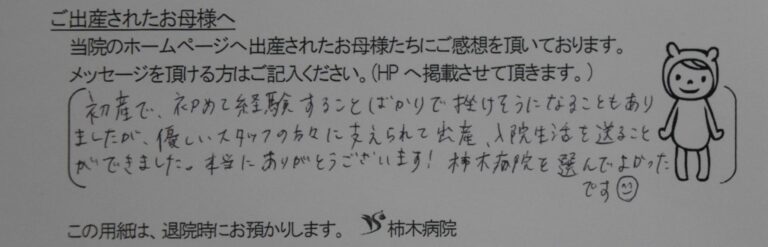 ご出産されたお母様へ
当院のホームページへ出産されたお母様たちにご感想を頂いております。
メッセージを頂ける方はご記入ください。(HPへ掲載させて頂きます。)
初産で、初めて経験することばかりで挫けそうになることもあり
ましたが、優しいスタッフの方々に支えられて出産、入院生活を送ること
ができました。本当にありがとうございます!柿木病院を選んでよかった
です
この用紙は、退院時にお預かりします。 柿木病院